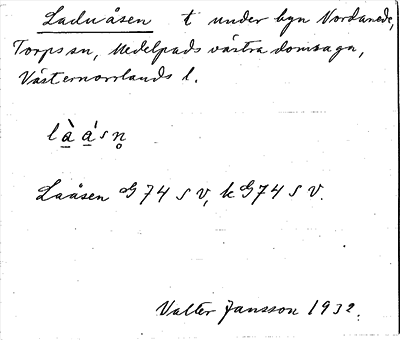 Laduåsen t under byn Nordanede,
Torps sn, Medelpads västra domsaga,
Västernorrlands l.
là̠ á̠ s n̥
Laåsen G 74 s v, k G 74 s v.
Valter Jansson 1932.